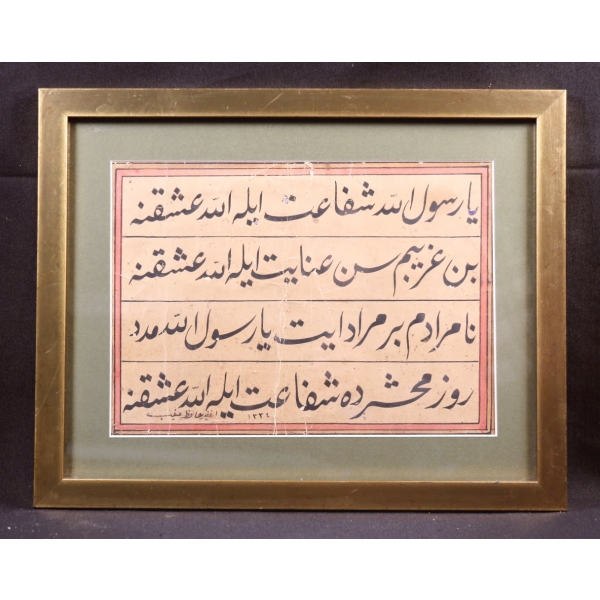 یا رسول الله شفاعت ایله الله عشقنه
بن غریبم سن عنایت ایله الله عشقنه
نا مرادم بر مراد ایت یا رسول الله مدد
روز محشرده شفاعت ایله الله عشقنه
۱۳۳٤